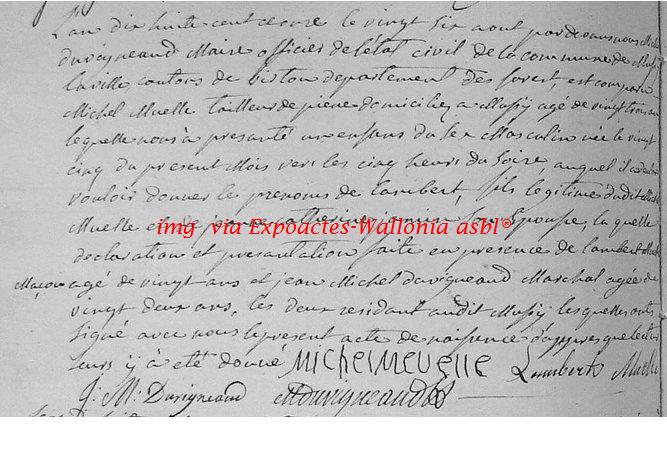 L'an dix huite cent onze le vingt six aout pardevans nous Michel
Duvigneaud Maire officier de letat civil de la commune de Mussy
laville, contons de birton departement des forest, est comparu
Michel Muelle tailleur de piere domicilié a Mussy agé de vingt trois ans
lequelle nous à presanté un enfans du sex Masculin née le vingt
cinq du present Mois vers les cinq heurs du soire auquel il a declaré
vouloir donner le prenoms de lambert, fils légitime dudit Michel
Muelle et de Catherine son Epouse, la quelle
declaration et presantation faite en presence de lambert Muelle
Maçon agé de vingt ans et jean Michel duvigneaud Marchal agée de
vingt deux ans, les deux residant audit Mussy lesquelle onts
signé avec nous le present acte de naissence d'appres que lecture
leurs ij à eté donné Michel Meuglle Lambert Muelle
J: M: Duvigneaud MDuvigneaud
img via Expoactes-Wallonia asbl©